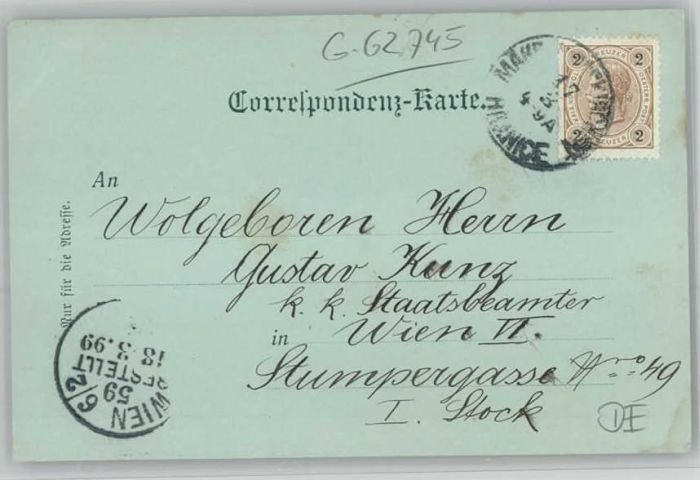 G-62745
Correspondenz-Karte.
2 KREUZER 2
2 KREUZER 2
HRANICE
An
Wolgeboren Herrn
Gustav Kunz
k. k. Staatsbeamter
in Wien VI.
Stumpergasse Nro 49
I. Stock
Nur für die Adresse.
WIEN 6/2
59
BESTELLT
18.3.99
DE